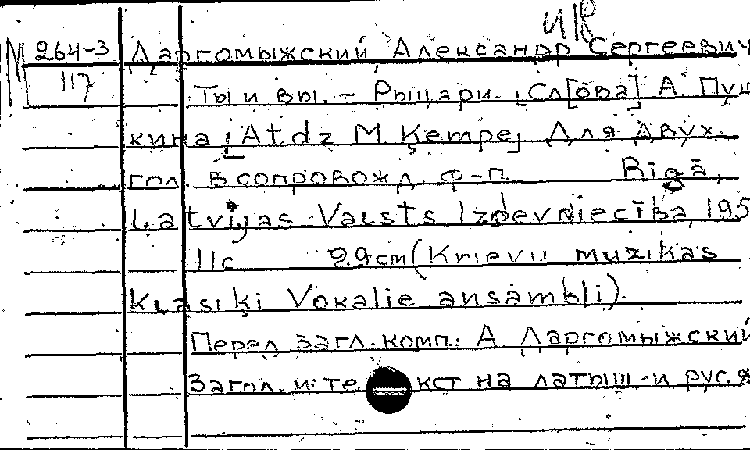 264-3 Даргомыжский, Александр Сергеевич
117 Ты и вы. - Рыцари. Сл[ова] А. Пуш
кина, [Atdz M. Ķempe, Для двух
гол. в сопровожд. ф-п. Rīgā,
Latvijas Valsts Izdevniecība, 195
11с 29cm (Krievu mūzikas
Klasiķi Vokālie ansambļi)
Перед загл. комп.: А. Даргомыжский
Загл. и текст на латыш. и рус. я